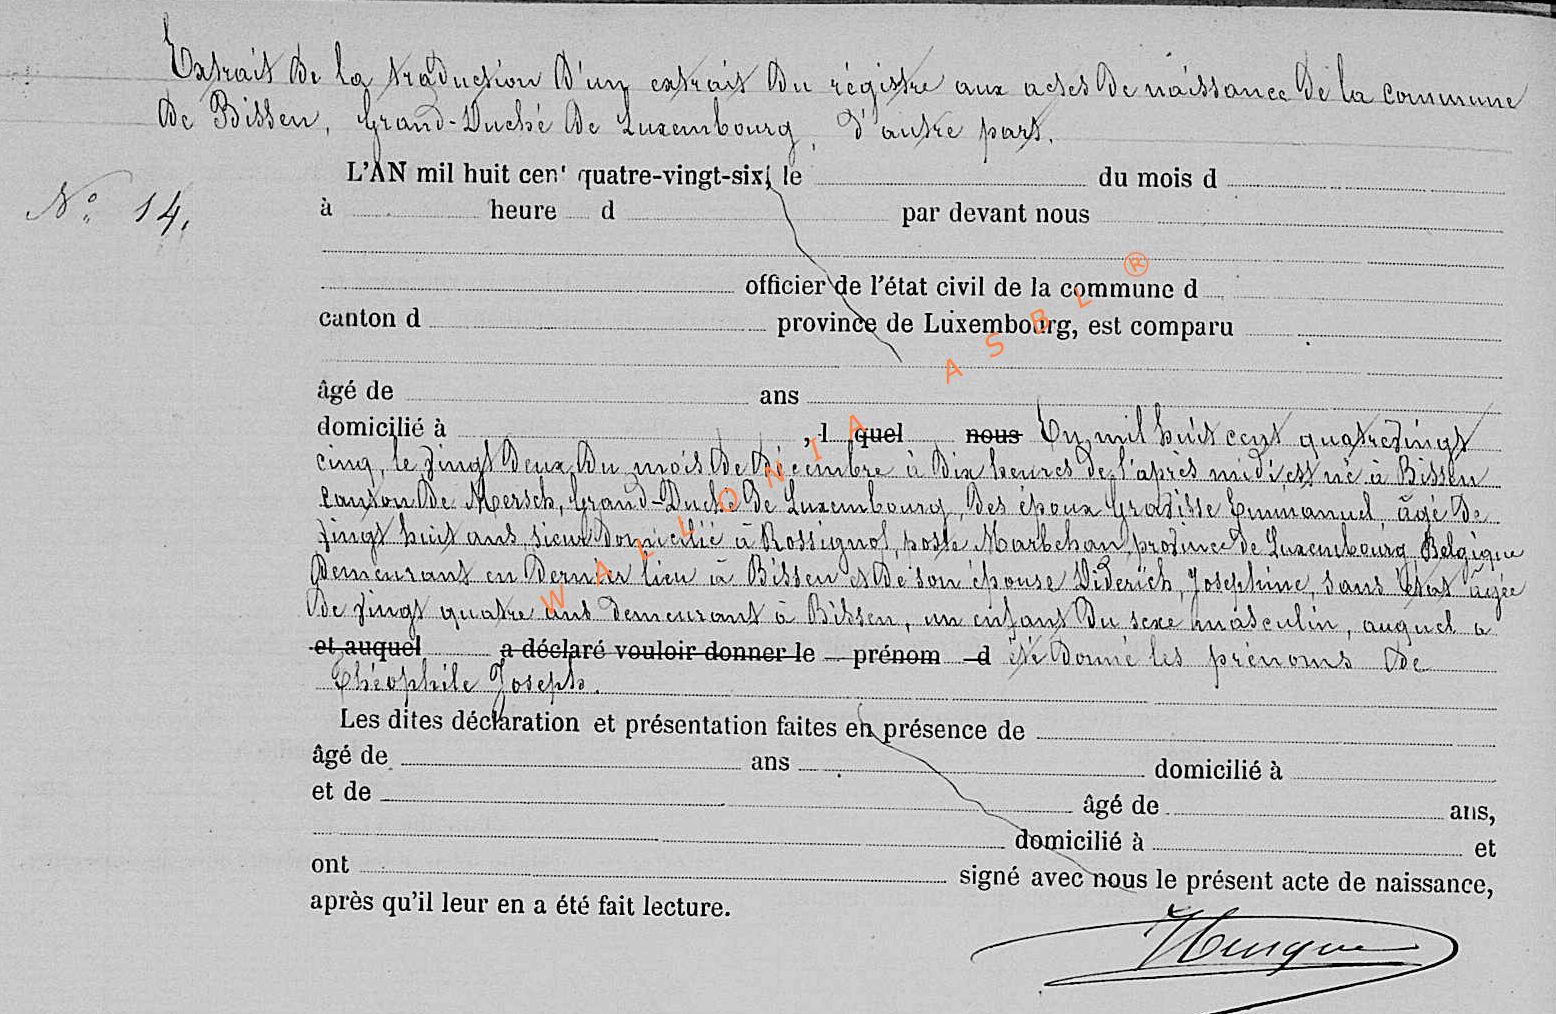 Extrait de la traduction d'un extrait du régistre aux actes de naissance de la commune
de Bissen, Grand-Duché de Luxembourg, d'autre part.
N° 14.
L'AN mil huit cent quatre-vingt-six, le du mois d
à heure d par devant nous
officier de l'état civil de la commune d
canton d province de Luxembourg, est comparu
âgé de ans
domicilié à , l quel nous En mil huit cent quatrevingt
cinq, le vingt deux du mois de Décembre à dix heures de l'après midi est né à Bissen
canton de Mersch, Grand-Duché de Luxembourg, des époux Gravisse Emmanuel, âgé de
vingt huit ans sieur domicilié à Rossignol, poste Marbehan, province de Luxembourg, Belgique
demeurant en dernier lieu à Bissen et de son épouse Diderich, Josephine, sans état âgée
de vingt quatre ans demeurant à Bissen, un enfant du sexe masculin, auquel a
et auquel a déclaré vouloir donner le prénom d été donné les prénoms de
Théophile Joseph.
Les dites déclaration et présentation faites en présence de
âgé de ans domicilié à
et de âgé de ans,
domicilié à et
ont signé avec nous le présent acte de naissance,
après qu'il leur en a été fait lecture.
WALLONIA ASBL ®